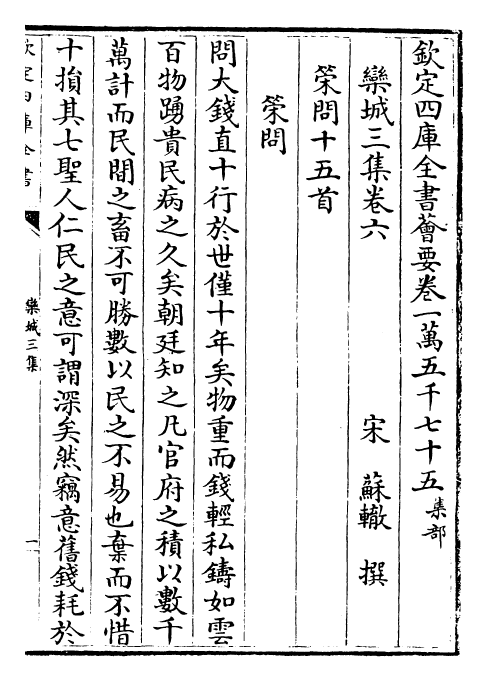 欽定四庫全書薈要卷一萬五千七十五集部
欒城三集卷六
宋 蘇轍 撰
策問十五首
策問
問大錢直十行於世僅十年矣物重而錢輕私鑄如雲
百物踴貴民病之久矣朝廷知之凡官府之積以數千
萬計而民間之畜不可勝數以民之不易也棄而不惜
十損其七聖人仁民之意可謂深矣然竊意舊錢耗於
欽定四庫全書
欒城三集
一